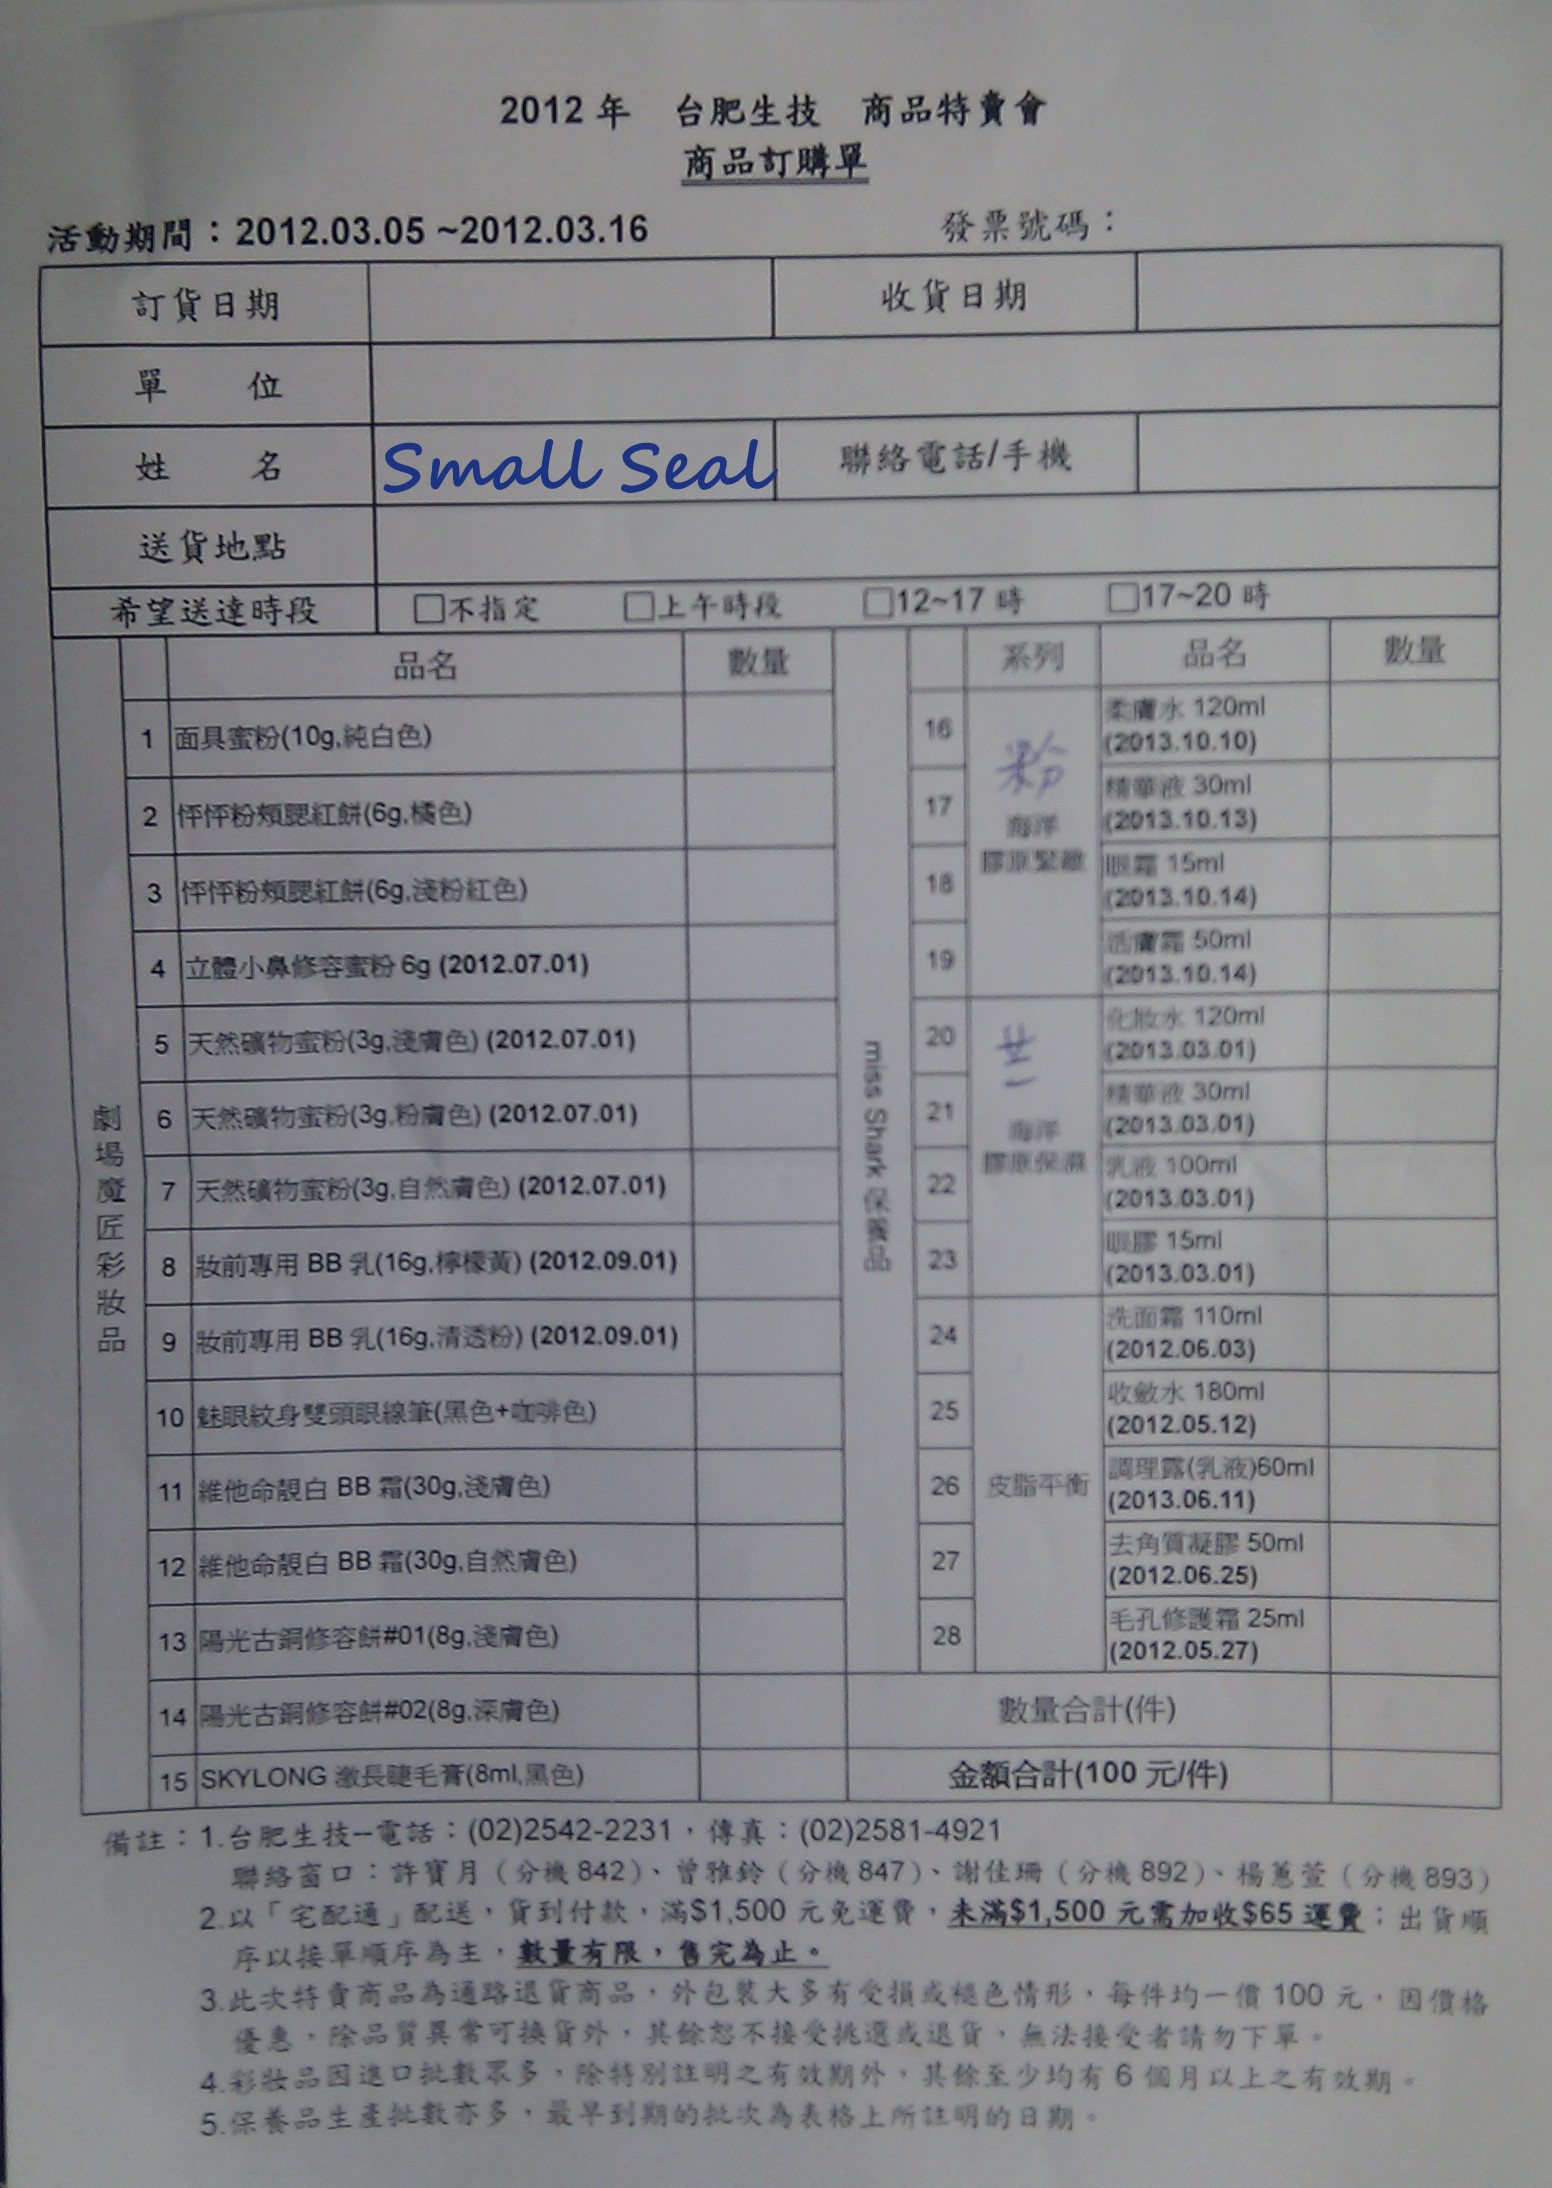 2012 年 台肥生技 商品特賣會
商品訂購單
活動期間：2012.03.05 ~2012.03.16 發票號碼：
訂貨日期 收貨日期
單 位
姓 名 Small Seal 聯絡電話/手機
送貨地點
希望送達時段 □不指定 □上午時段 □12~17 時 □17~20 時
劇場魔匠彩妝品
品名 數量
1 面具蜜粉(10g,純白色)
2 怦怦粉頰腮紅餅(6g,橘色)
3 怦怦粉頰腮紅餅(6g,淺粉紅色)
4 立體小鼻修容蜜粉 6g (2012.07.01)
5 天然礦物蜜粉(3g,淺膚色) (2012.07.01)
6 天然礦物蜜粉(3g,粉膚色) (2012.07.01)
7 天然礦物蜜粉(3g,自然膚色) (2012.07.01)
8 妝前專用 BB 乳(16g,檸檬黃) (2012.09.01)
9 妝前專用 BB 乳(16g,清透粉) (2012.09.01)
10 魅眼紋身雙頭眼線筆(黑色+咖啡色)
11 維他命靚白 BB 霜(30g,淺膚色)
12 維他命靚白 BB 霜(30g,自然膚色)
13 陽光古銅修容餅#01(8g,淺膚色)
14 陽光古銅修容餅#02(8g,深膚色)
15 SKYLONG 激長睫毛膏(8ml,黑色)
miss Shark 保養品
系列 品名 數量
粉
海洋
膠原緊緻
16 柔膚水 120ml
(2013.10.10)
17 精華液 30ml
(2013.10.13)
18 眼霜 15ml
(2013.10.14)
19 活膚霜 50ml
(2013.10.14)
海洋
膠原保濕
20 化妝水 120ml
(2013.03.01)
21 精華液 30ml
(2013.03.01)
22 乳液 100ml
(2013.03.01)
23 眼膠 15ml
(2013.03.01)
皮脂平衡
24 洗面霜 110ml
(2012.06.03)
25 收斂水 180ml
(2012.05.12)
26 調理露(乳液)60ml
(2013.06.11)
27 去角質凝膠 50ml
(2012.06.25)
28 毛孔修護霜 25ml
(2012.05.27)
數量合計(件)
金額合計(100 元/件)
備註：1.台肥生技–電話：(02)2542-2231，傳真：(02)2581-4921
聯絡窗口：許寶月（分機 842）、曾雅鈴（分機 847）、謝佳珊（分機 892）、楊蕙萱（分機 893）
2.以「宅配通」配送，貨到付款，滿$1,500 元免運費，未滿$1,500 元需加收$65 運費；出貨順
序以接單順序為主，數量有限，售完為止。
3.此次特賣商品為通路退貨商品，外包裝大多有受損或褪色情形，每件均一價 100 元，因價格
優惠，除品質異常可換貨外，其餘恕不接受挑選或退貨，無法接受者請勿下單。
4.彩妝品因進口批數眾多，除特別註明之有效期外，其餘至少均有 6 個月以上之有效期。
5.保養品生產批數亦多，最早到期的批次為表格上所註明的日期。